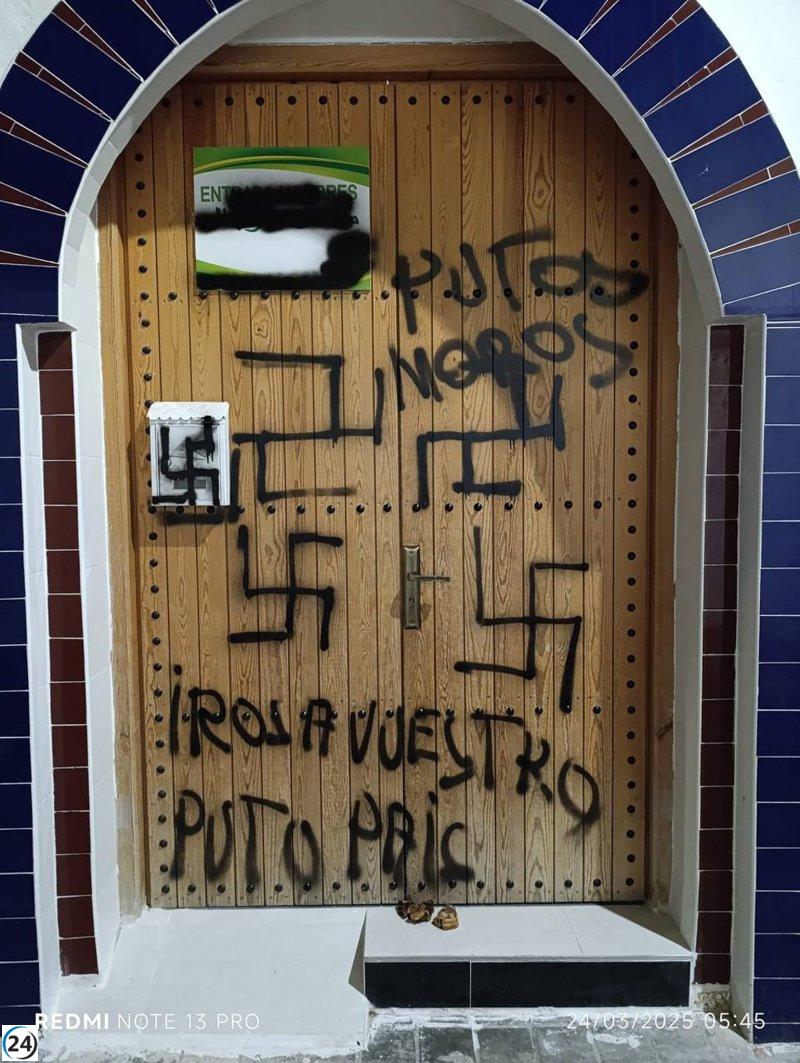 PUTOS
MOROS
IROS A VUESTRO
PUTO PAIS
REDMI NOTE 13 PRO
24/03/2025 05:45
24